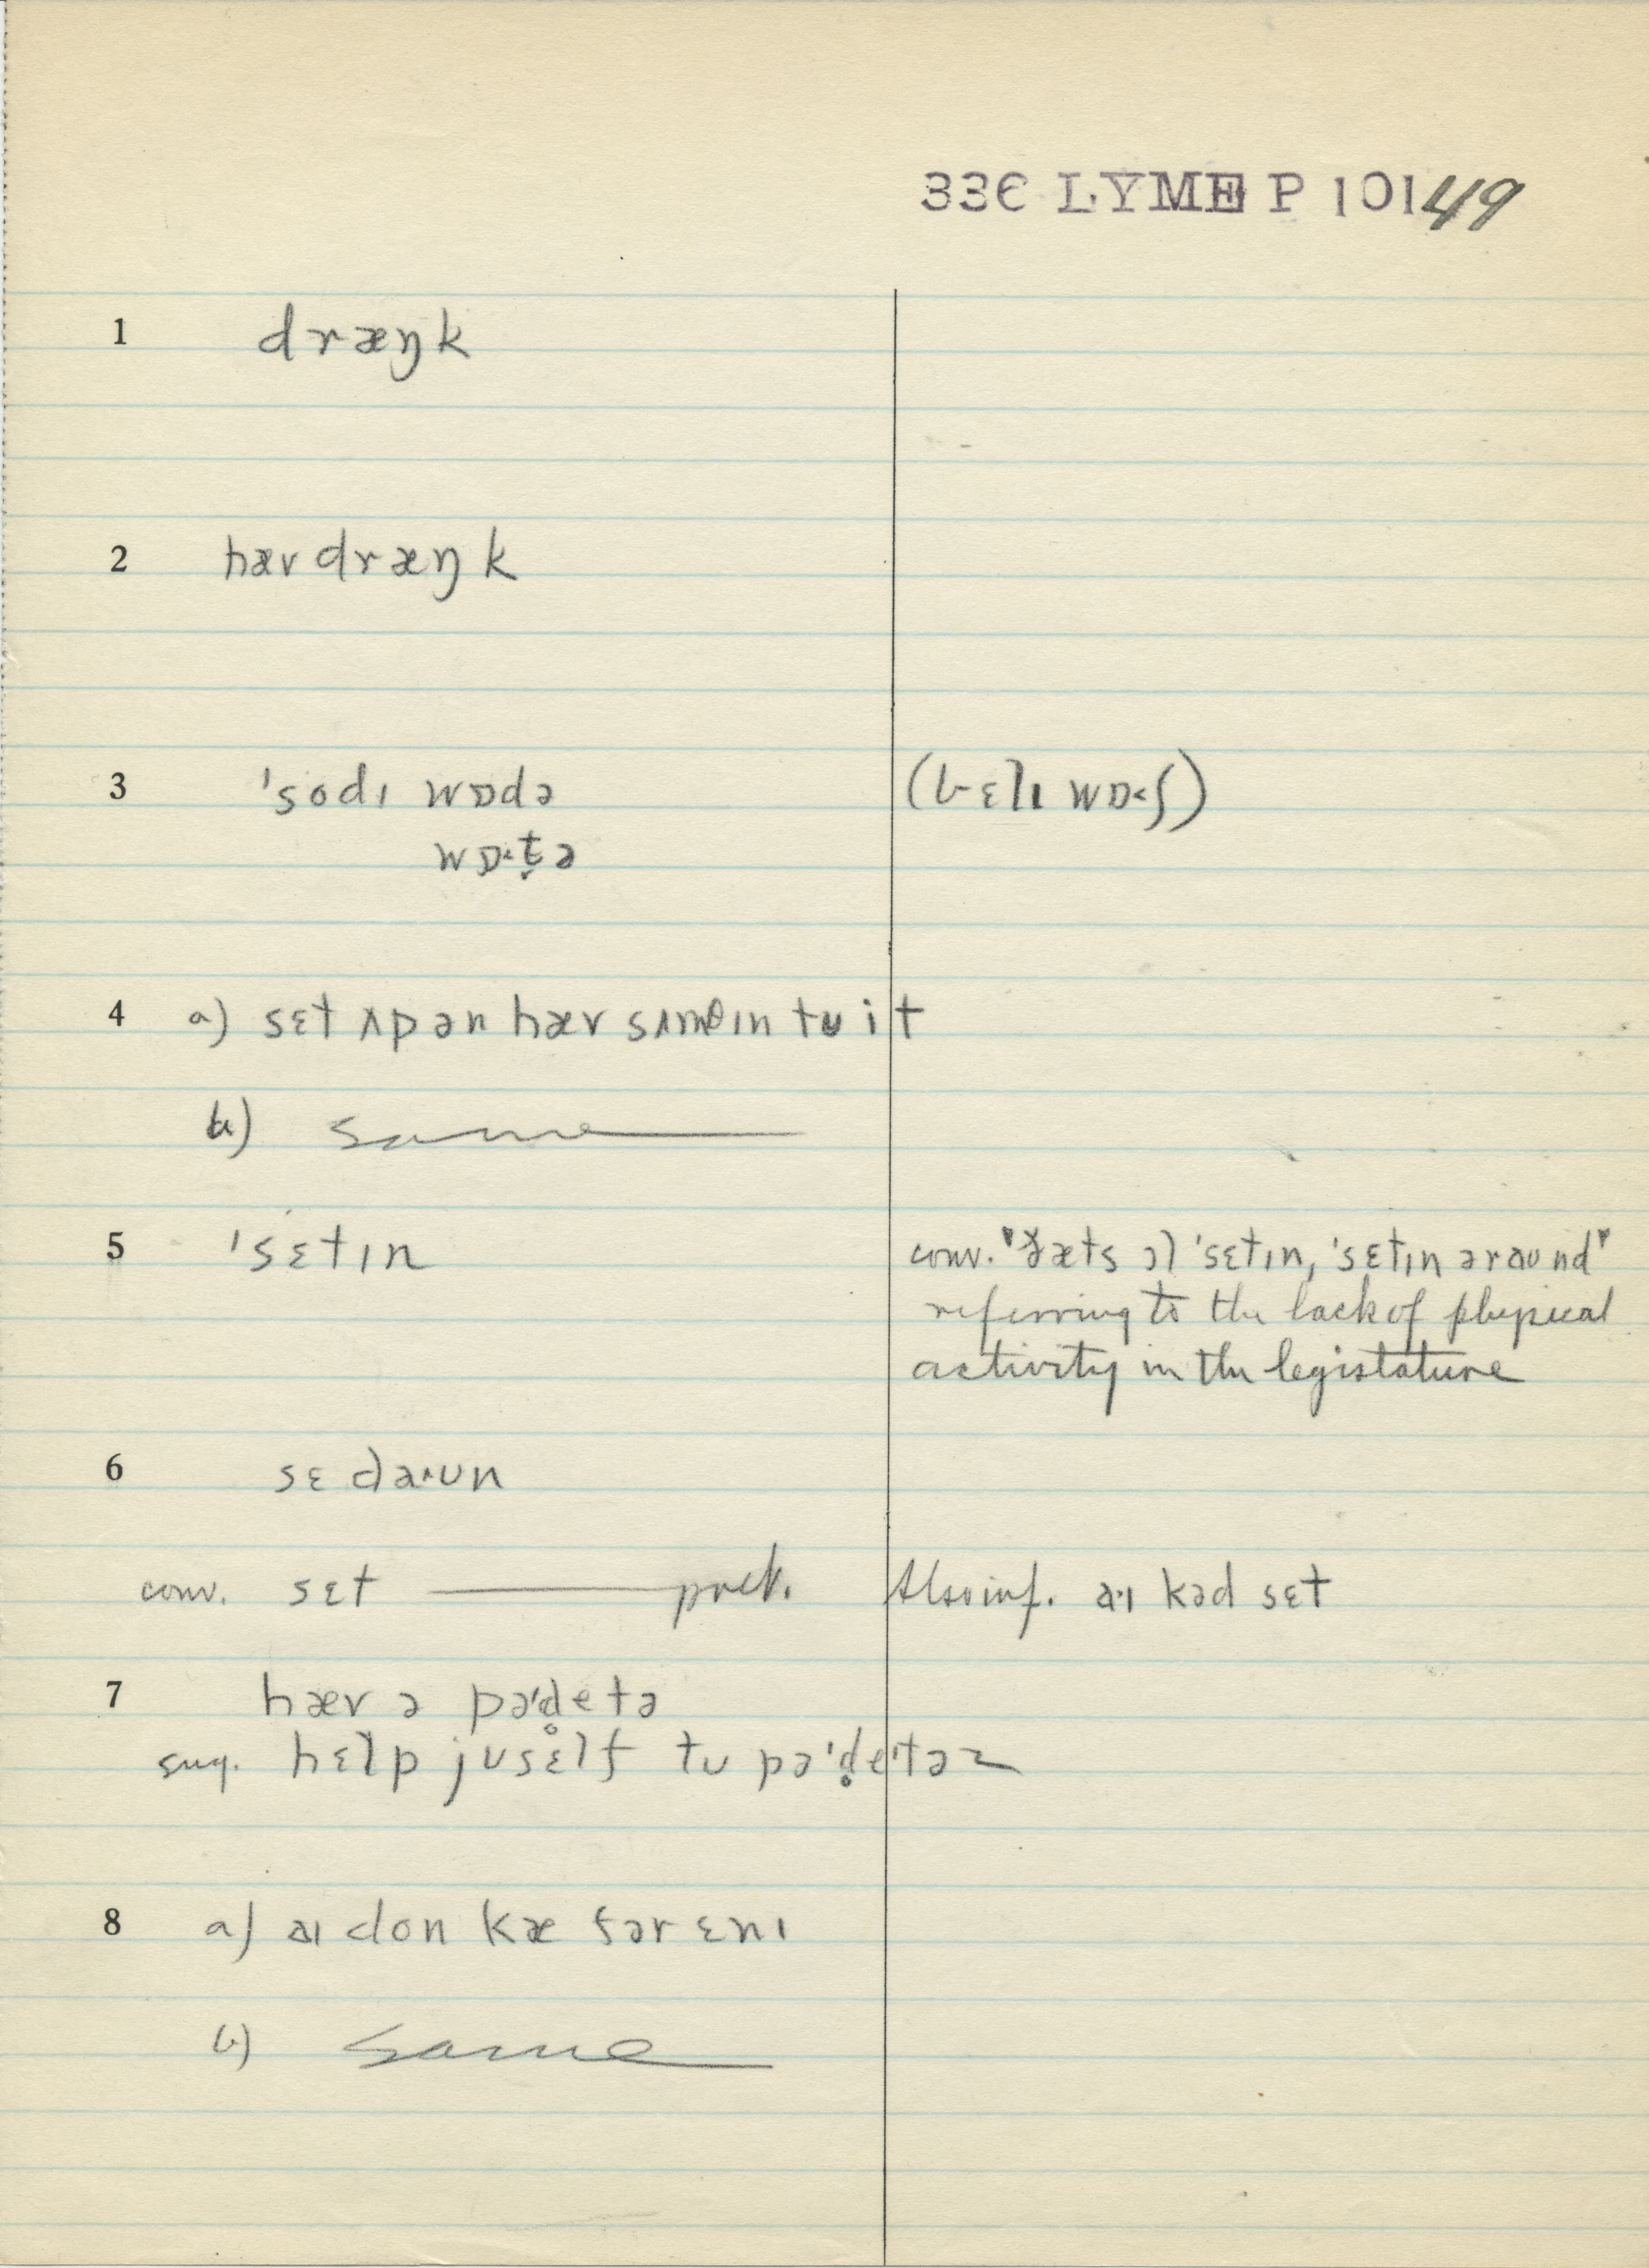 336 LYME P 10149
1 dræŋk
2 hæv dræŋk
3 ˈsodɪ wɒdə (bɛlɪ wɒ˂ʃ)
wɒ˂t̬ə
4 a) sɛt ʌp ən hæv sʌmθɪn tu it
b) same
5 ˈsɛtɪn conv. "ðæts ɔl ˈsɛtɪn, ˈsɛtɪn əraund"
referring to the lack of physical
activity in the legistature
6 sɛ daˑun
conv. sɛt — pret. Also inf. aˑɪ kəd sɛt
7 hæv ə pəˈd̥etə
sug. hɛlp jusɛlf tu pəˈd̥etəz
8 a) aɪ don kæ fər ɛnɪ
b) same